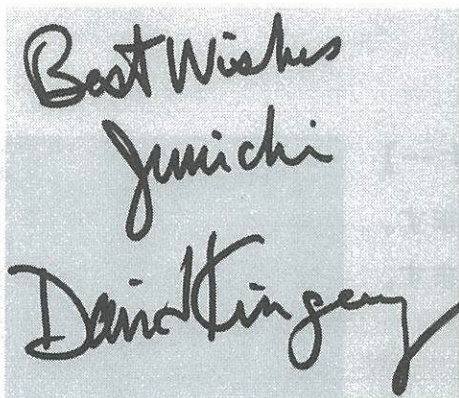 Best Wishes
Junichi
David Kingery